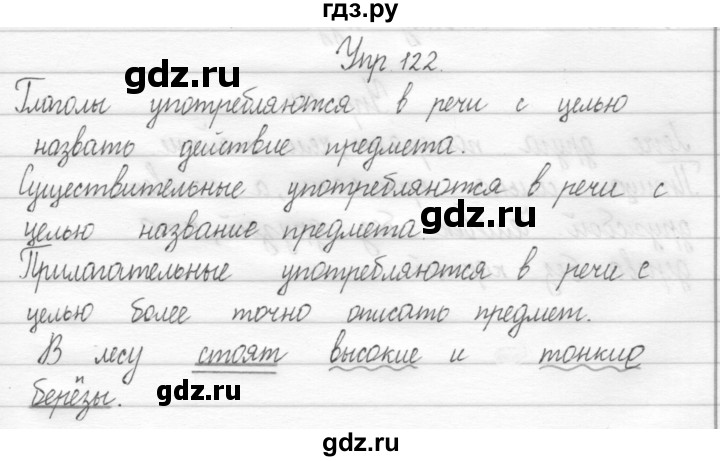 гдз.ру
Упр 122.
gdz.ru
Глаголы употребляются в речи с целью
назвать действие предмета.
Существительные употребляются в речи с
gdz.ru
целью название предмета.
Прилагательные употребляются в речи с
целью более точно описать предмет.
В лесу стоят высокие и тонкие
gdz.ru
берёзы.
gdz.ru